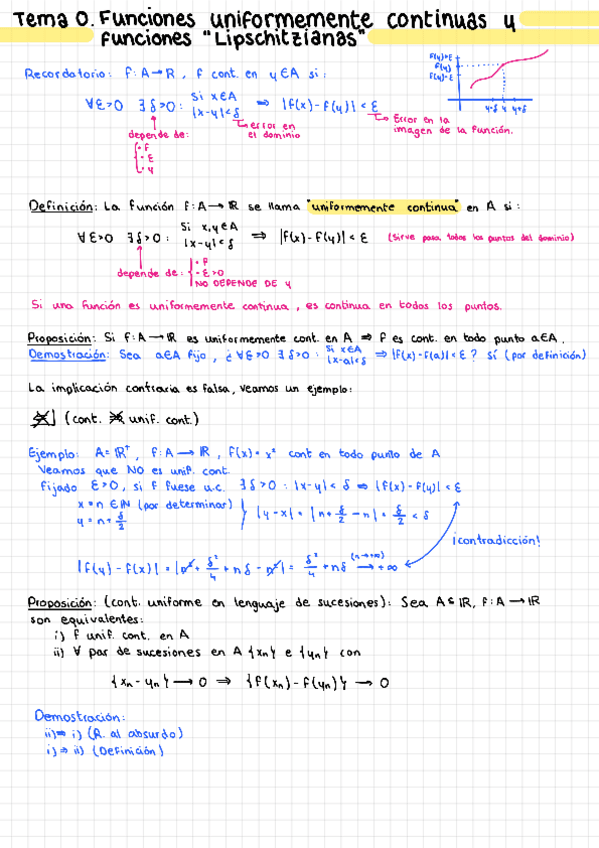 Tema 0. Funciones uniformemente continuas y
funciones "Lipschitzianas"
Recordatorio: f: A → R, f cont. en y ∈ A si:
∀ε>0 ∃δ>0 : si x∈A |x-y|<δ ⇒ |f(x)-f(y)| < ε
f(y)+ε
f(y)
f(y)-ε
y-δ y y+δ
error en el dominio
Error en la imagen de la función.
depende de:
· f
· ε
· y
Definición: La función f: A → ℝ se llama "uniformemente continua" en A si:
∀ε>0 ∃δ>0 : si x,y∈A |x-y|<δ ⇒ |f(x)-f(y)| < ε (sirve para todos los puntos del dominio)
depende de:
· f
· ε>0
NO DEPENDE DE y
Si una función es uniformemente continua, es continua en todos los puntos.
Proposición: Si f: A → ℝ es uniformemente cont. en A ⇒ f es cont. en todo punto a∈A.
Demostración: Sea a∈A fijo, ¿∀ε>0 ∃δ>0 : si x∈A |x-a|<δ ⇒ |f(x)-f(a)|<ε? Sí (por definición)
La implicación contraria es falsa, veamos un ejemplo:
(cont. ⇏ unif. cont.)
Ejemplo: A=ℝ⁺, f: A → ℝ, f(x)=x² cont en todo punto de A
Veamos que NO es unif. cont.
Fijado ε>0, si f fuese u.c. ∃δ>0 : |x-y| < δ ⇒ |f(x)-f(y)| < ε
x=n∈ℕ (por determinar)
y=n+δ/2
|y-x| = |n+δ/2-n| = δ/2 < δ
¡contradicción!
|f(y)-f(x)| = |n²+δ²/4+nδ-n²| = δ²/4+nδ (n→+∞) → +∞
Proposición: (cont. uniforme en lenguaje de sucesiones): Sea A⊆ℝ, f: A → ℝ
son equivalentes:
i) f unif. cont. en A
ii) ∀ par de sucesiones en A {xn} e {yn} con
{xn-yn} → 0 ⇒ {f(xn)-f(yn)} → 0
Demostración:
ii)⇒ i) (R. al absurdo)
i)⇒ ii) (Definición)